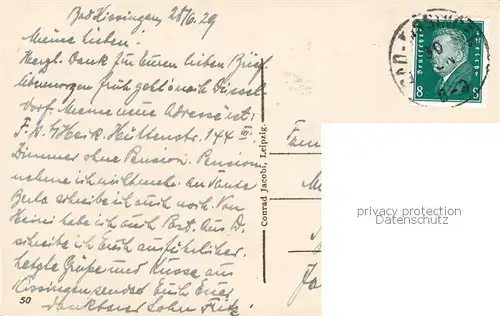 Bad Kissingen, 28/6.29
Meine Lieben!
Herzl. Dank für Euren lieben Brief.
Übermorgen früh geht's nach Düssel-
dorf. Meine neue Adresse ist:
F. D. Hüttenstr. 144 III.
Zimmer ohne Pension. Pension
nehme ich nicht mehr. An Tante
Berta schreibe ich auch noch. Von
Heini habe ich auch Post. Aus D.
schreibe ich Euch ausführlicher.
Letzte Grüße und Küsse aus
Kissingen sendet Euch Euer
dankbarer Sohn Fritz.
50
Conrad Jacobi, Leipzig.
Deutsches Reich
8 8
BAD KISSINGEN
Fam
privacy protection
VintagePostCards.org